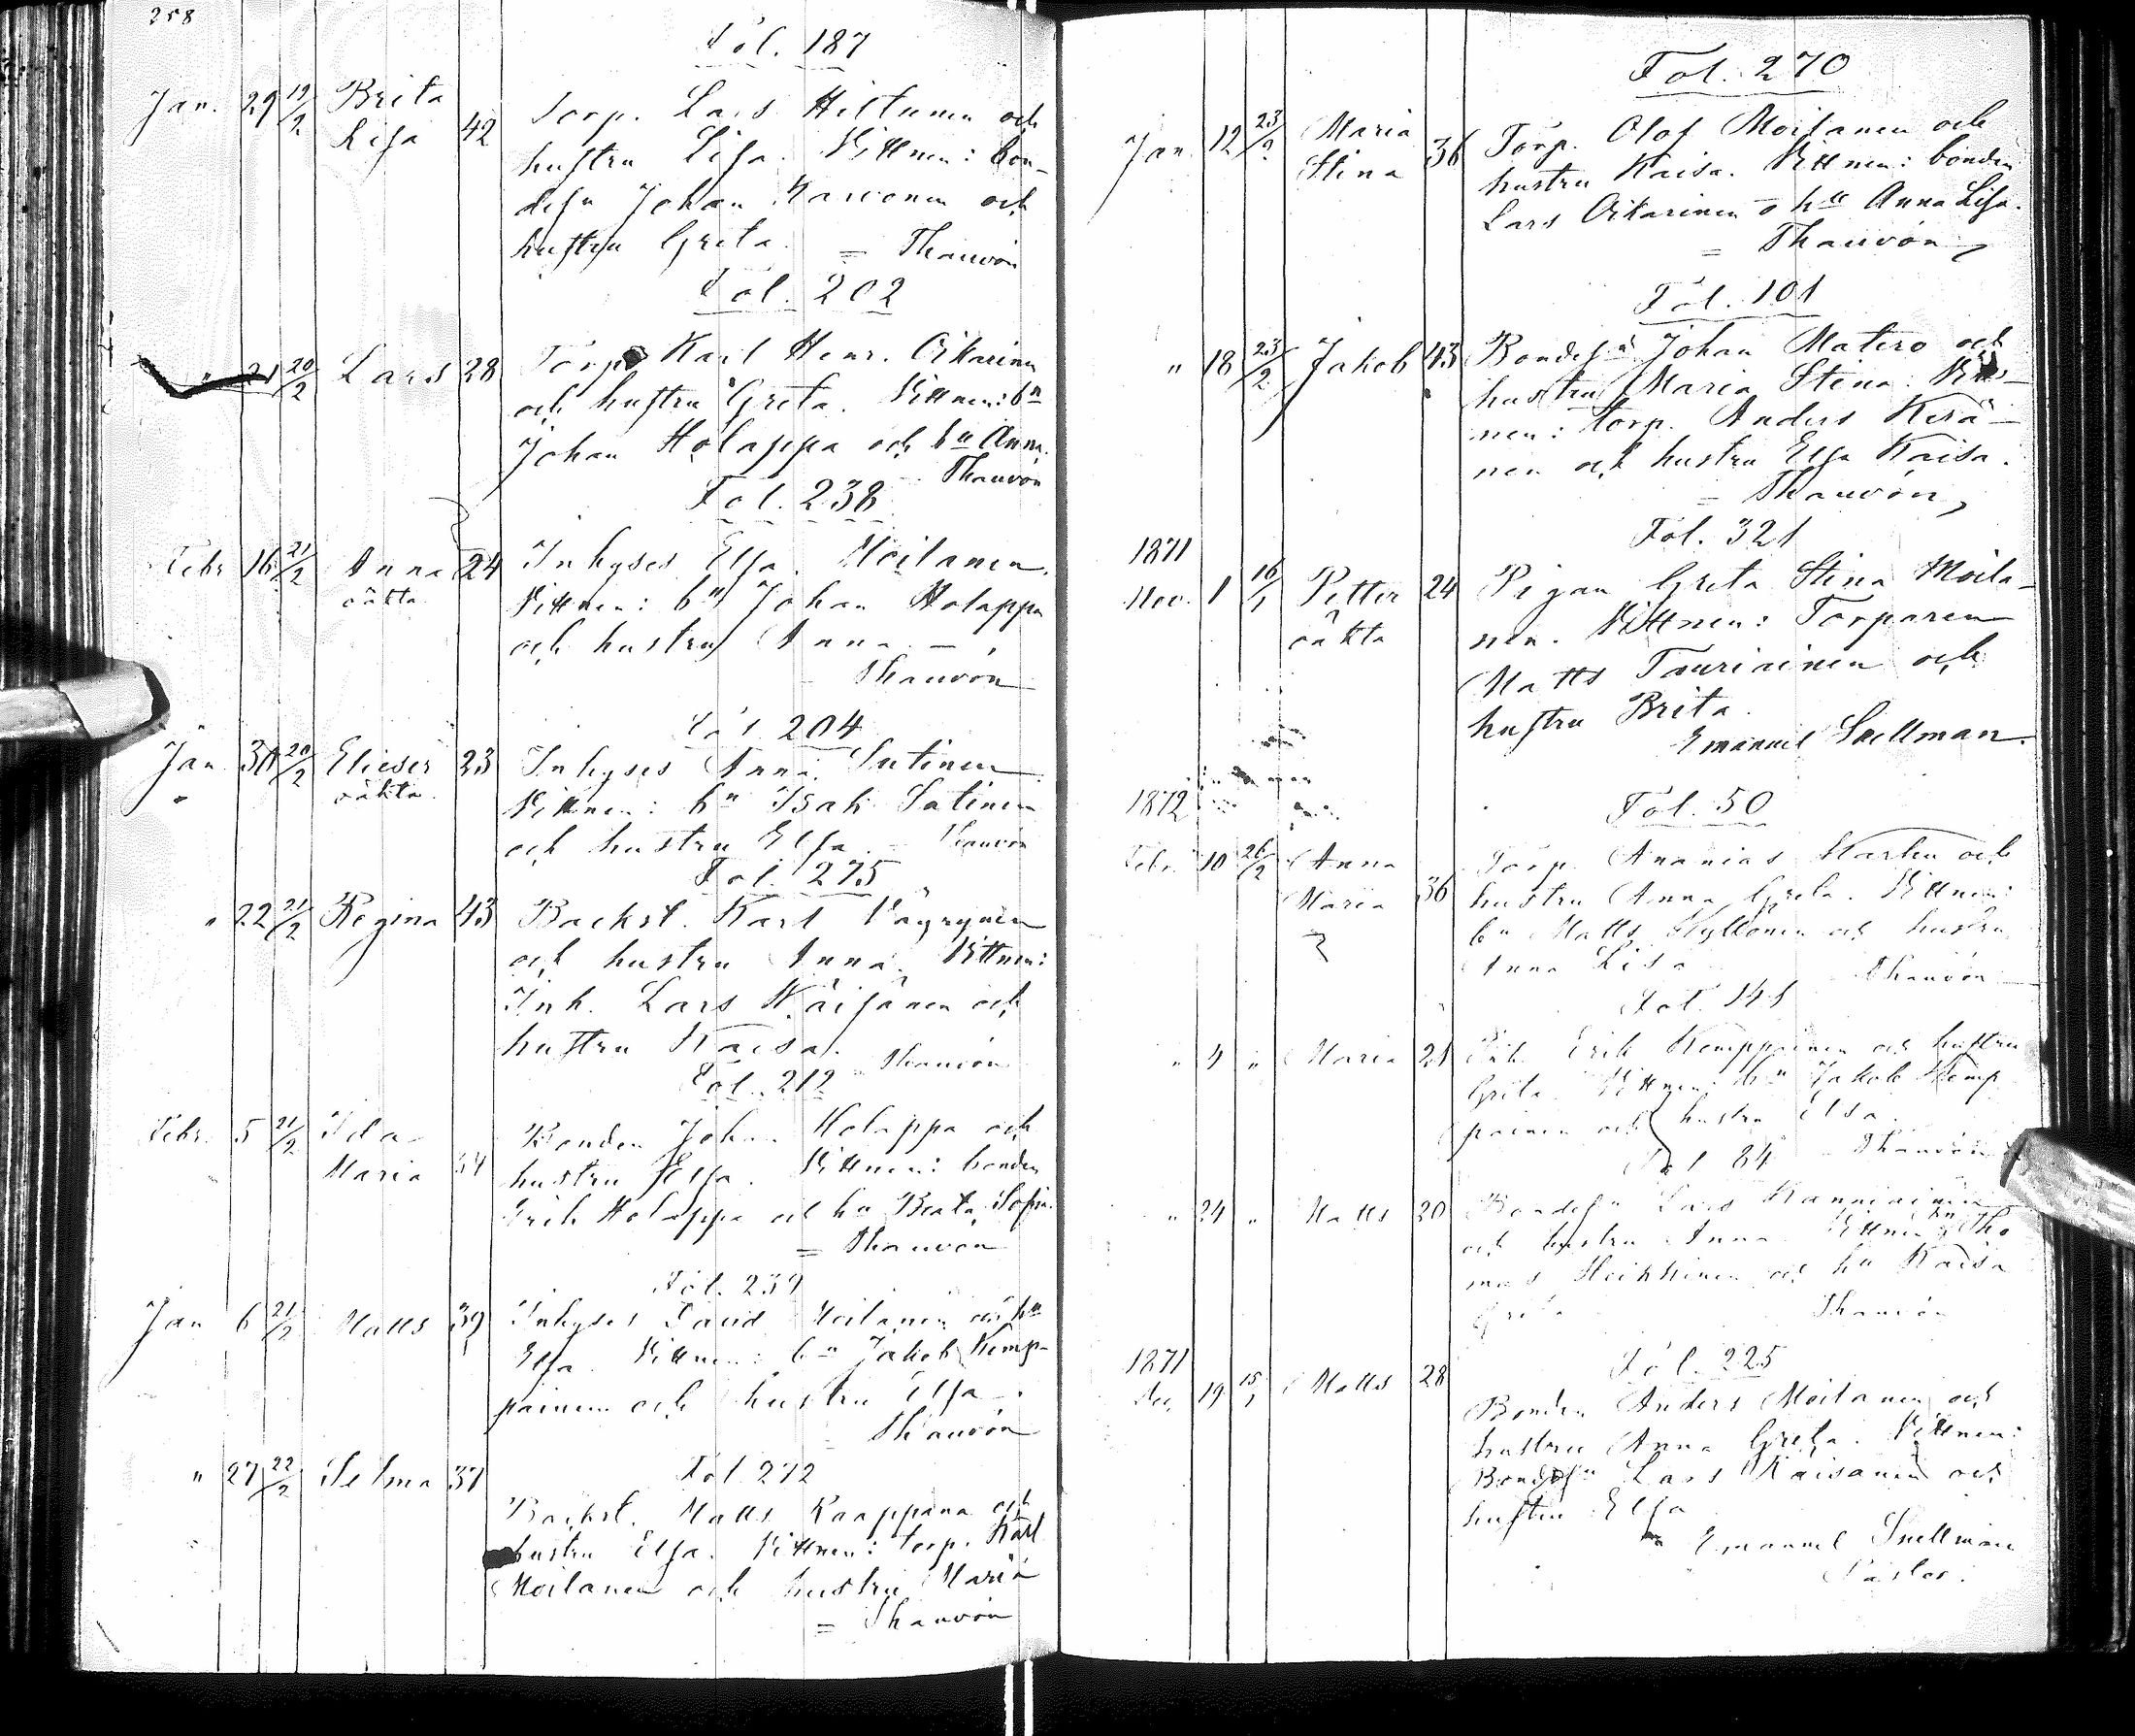 258
Fol. 187
Jan. 29 19/2 Brita Lisa 42 Torp. Lars Hiltunen och
hustru Lisa. Vittnen: bon-
desn Johan Karvonen och
hustru Greta. = Thauvón
Fol. 202
" 21 20/2 Lars 28 Torp. Karl Henr. Oikarinen
och hustru Greta. Vittnen: bn
Johan Holappa och hu Anna.
Thauvón
Fol. 238
Febr 16 21/2 Anna 24 Inhyses Elsa Moilanen.
oäkta Vittnen: bn Johan Holappa
och hustru Anna —
Thauvón
Fol. 204
Jan 30 20/2 Elieser 23 Inhyses Anna Sutinen
oäkta. Vittnen: bn Isak Sutinen
och hustru Elsa. = Thauvón
Fol. 275
" 22 21/2 Regina 43 Backst. Karl Väyrynen
och hustru Anna. Vittnen:
Inh. Lars Käisänen och
hustru Kaisa. Thauvón
Fol. 212
Febr. 5 21/2 Ida Maria 34 Bonden Johan Holappa och
hustru Elsa. Vittnen: bonden
Erik Holappa och hu Beata Sofia.
= Thauvón
Fol. 239
Jan 6 21/2 Matts 39 Inhyses David Moilanen och hu
Elsa. Vittnen: bn Jakob Kemp-
painen och hustru Elsa.
Thauvón
" 27 22/2 Selma 37 Fol. 272
Backst. Matts Kaappana och
hustru Elsa. Vittnen: torp. Karl
Moilanen och hustru Maria
= Thauvón
Fol. 270
Jan. 12 23/2 Maria Stina 36 Torp. Olof Moilanen och
hustru Kaisa. Vittnen: bonden
Lars Oikarinen o hu Anna Lisa.
= Thauvón
Fol. 101
" 18 23/2 Jakob 43 Bondesn Johan Matero och
hustru Maria Stina. Vitt-
nen: torp. Anders Kerä-
nen och hustru Elsa Kaisa.
= Thauvón
Fol. 321
1871
Nov. 1 16/1 Petter 24 Pigan Greta Stina Moila-
oäkta nen. Vittnen: Torparen
Matts Tauriainen och
hustru Brita.
Emanuel Snellman.
1872 Fol. 50
Febr. 10 26/2 Anna Maria 36 Torp. Ananias Karhu och
hustru Anna Greta. Vittnen:
bn Matts Kyllönen och hustru
Anna Lisa Thauvón
Fol. 141
" 4 " Maria 21 Inh. Erik Kemppainen och hustru
Greta. Vittnen: bn Jakob Kemp
painen och hustru Elsa.
Fol 84 Thauvón
" 24 " Matts 20 Bondesn Lars Kanniainen
och hustru Anna. Vittnen: bn Tho
mas Heikkinen och hu Kaisa
Greta Thauvón
1871 Fol. 225
Dec. 19 15/1 Matts 28 Bonden Anders Moilanen och
hustru Anna Greta. Vittnen:
Bondesn Lars Käisänen och
hustru Elsa
Emanuel Snellman
Pastor.